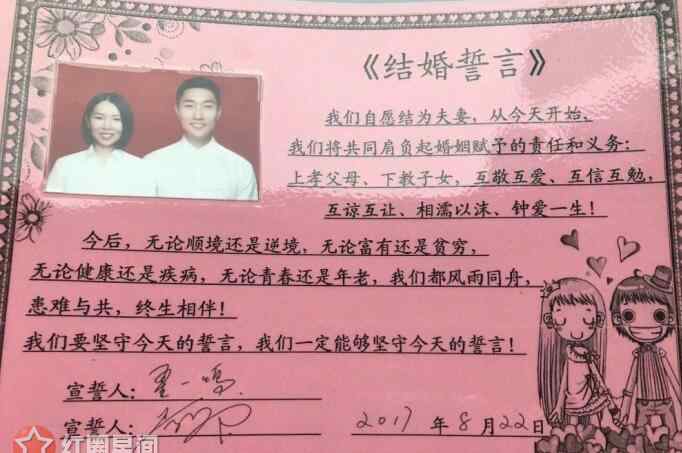 《结婚誓言》
我们自愿结为夫妻，从今天开始，
我们将共同肩负起婚姻赋予的责任和义务：
上孝父母、下教子女，互敬互爱、互信互勉，
互谅互让、相濡以沫、钟爱一生！
今后，无论顺境还是逆境，无论富有还是贫穷，
无论健康还是疾病，无论青春还是年老，我们都风雨同舟，
患难与共，终生相伴！
我们要坚守今天的誓言，我们一定能够坚守今天的誓言！
宣誓人：翟一鸣
宣誓人：
2017年8月22日